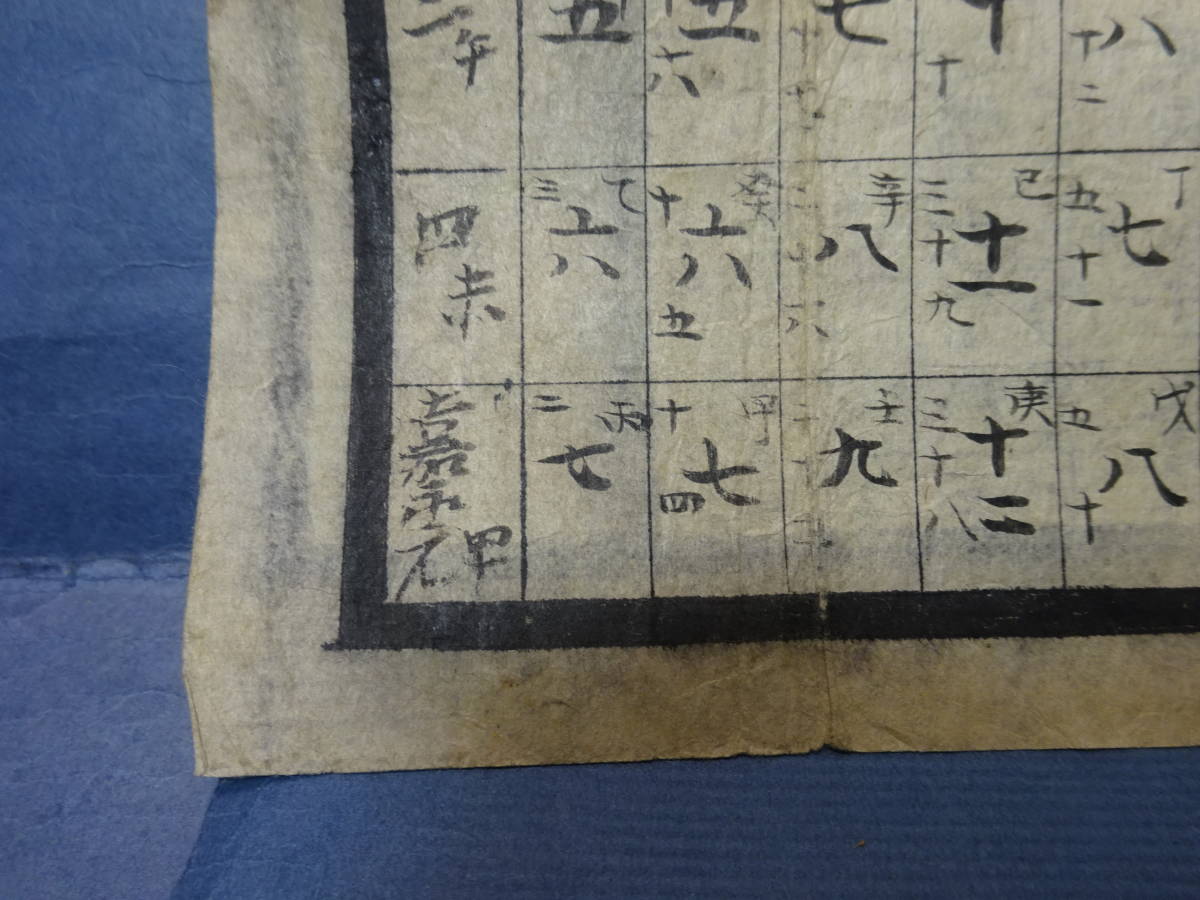 八
十二
丁
七
五十一
戊
八
五十
十
十
己
十一
三十九
庚
十二
三十八
七
辛
八
二十六
壬
九
二十
五
六
癸
六
十五
甲
七
十四
五
乙
六
三
丙
七
二
午
四
未
嘉永元
申